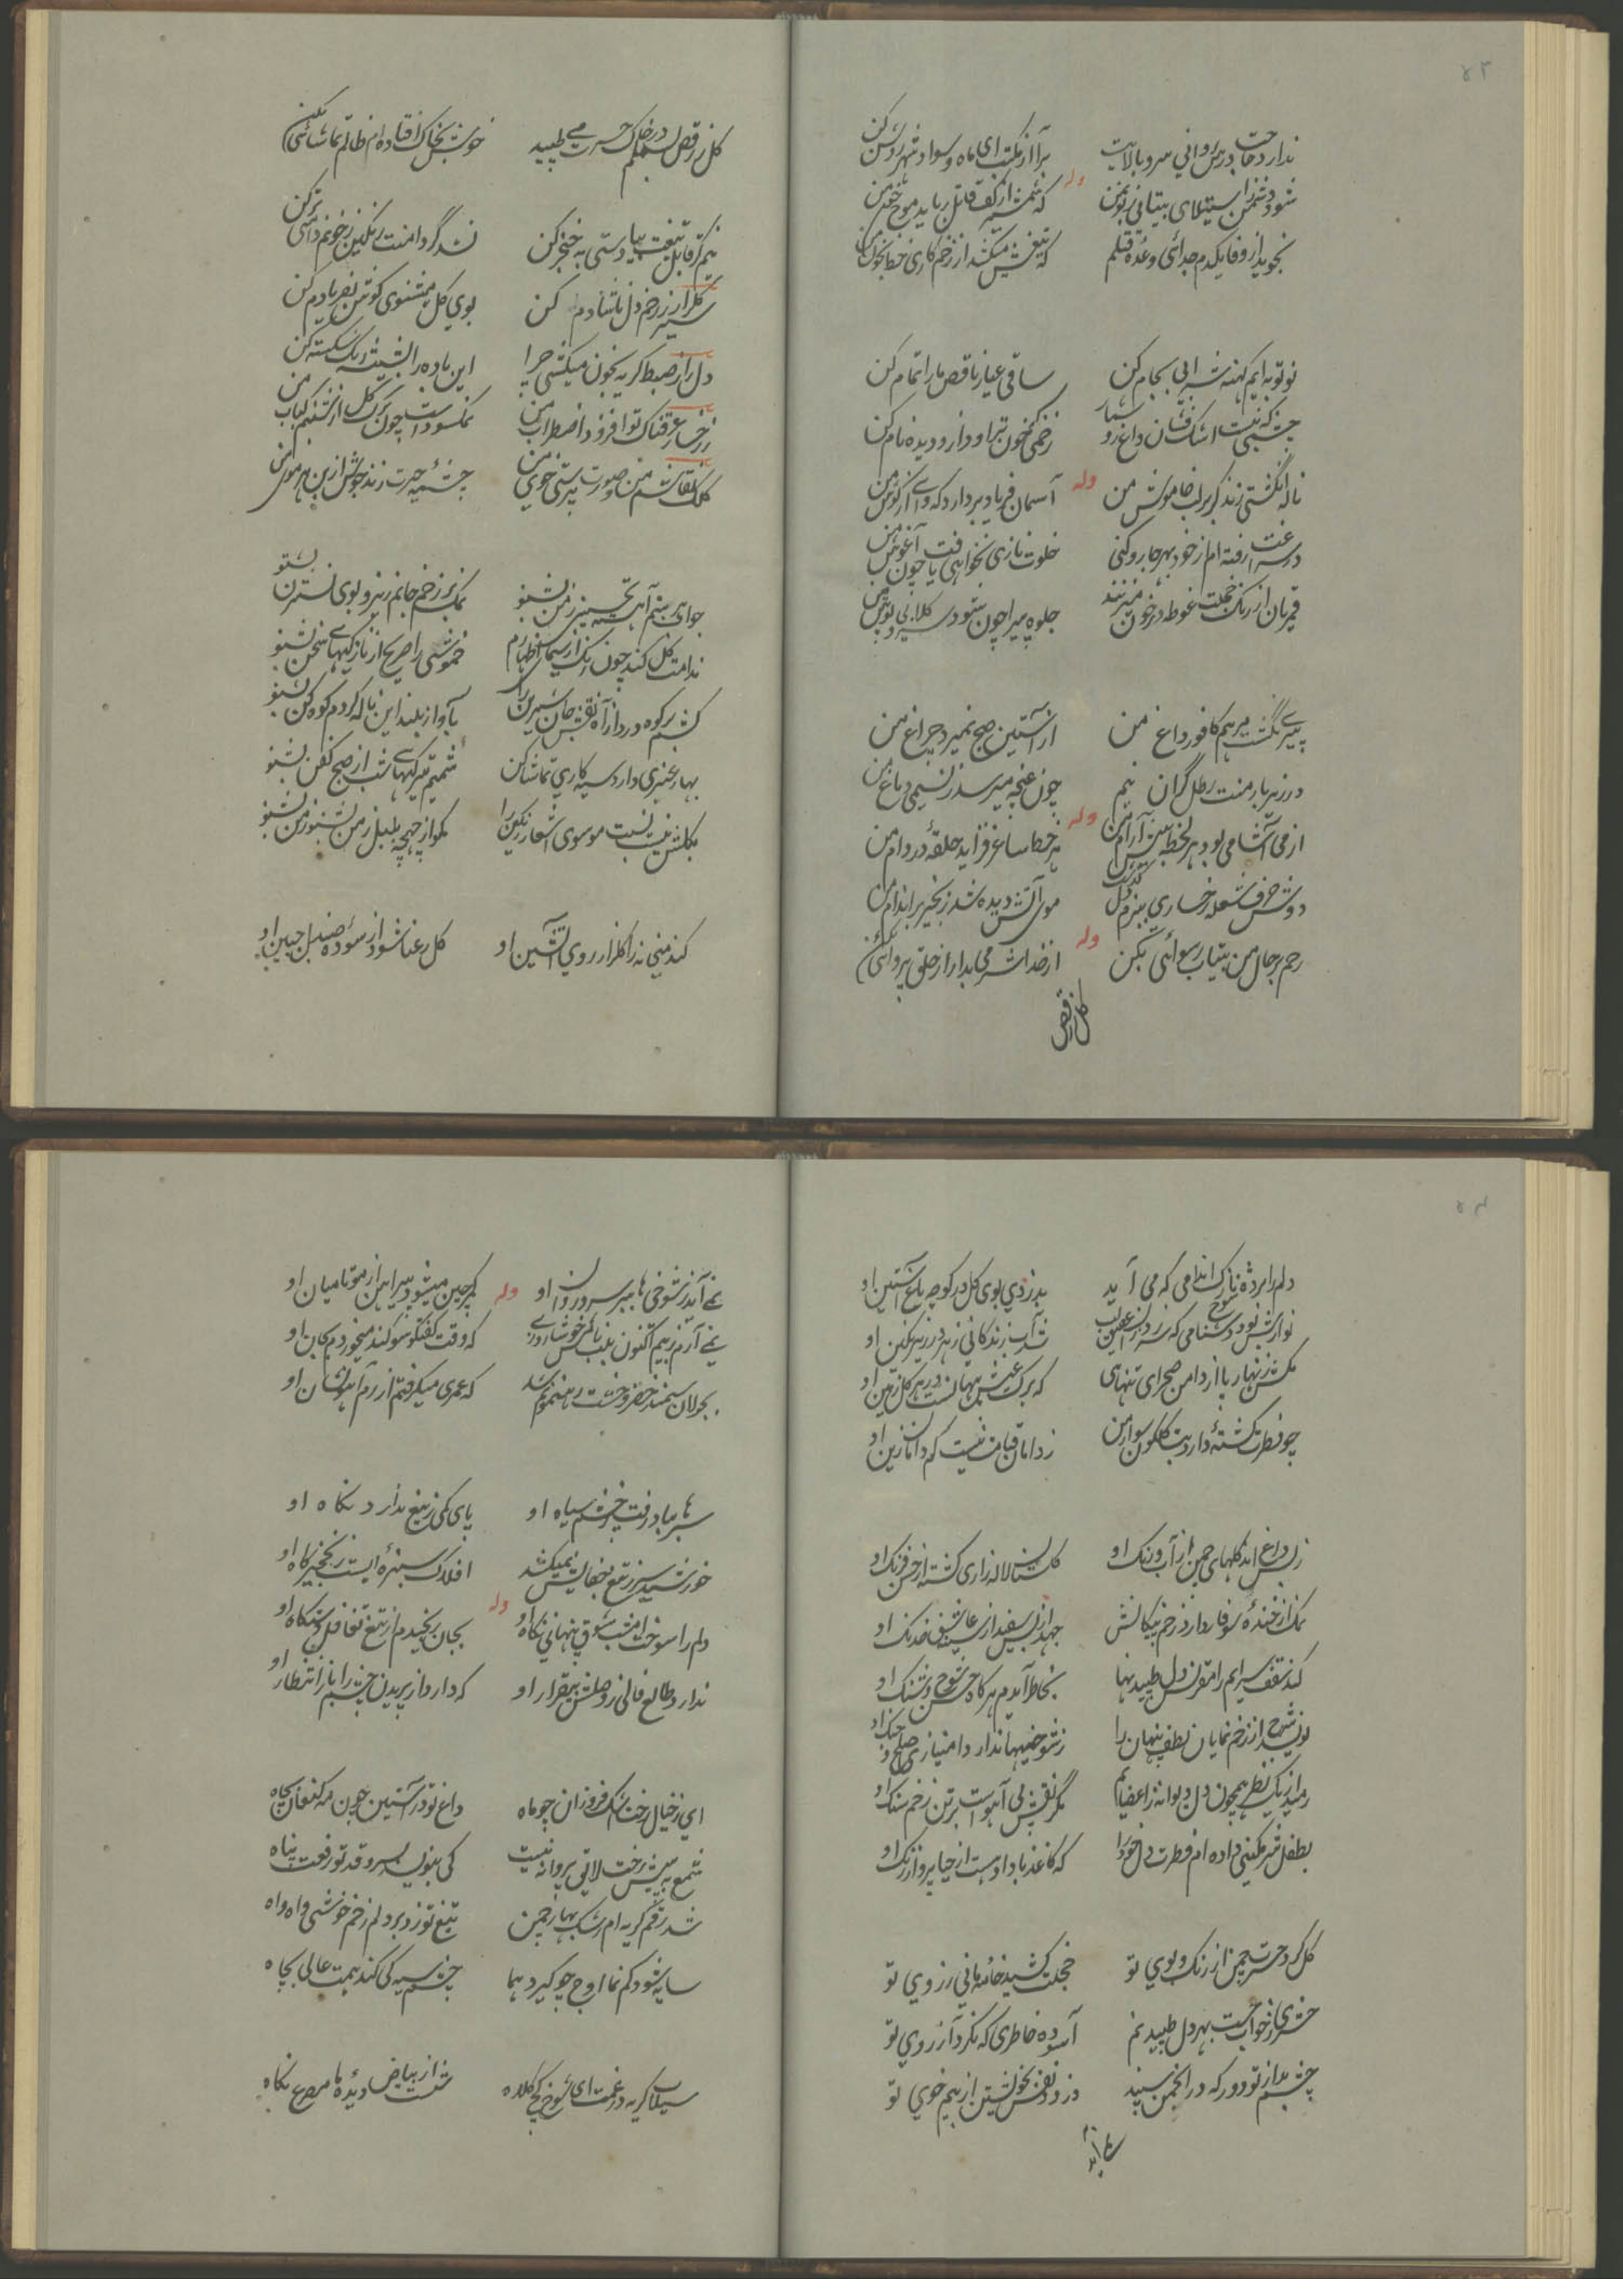 ۵۳
ندارد حاجت درس روانی سرو بالایت
برآ از مکتب ای ماه و سواد شهر روشن کن
وله
شود دشمن ز استیلای بیتابی زبون من
که شمشیر از کف قاتل رباید موج خون من
نجوید از وفا یکدم جدائی وعده قتلم
که تیغش میکشد از زخم کاری خط بخون من
نو توبه‌ایم کهنه شرابی بجام کن
ساقی عیار ناقص ما را تمام کن
چشمی که نیست اشک فشان داغ رو شمار
زخمی که خون تراود ازو دیده نام کن
وله
ناله انگشتی زند گر بر لب خاموش من
آسمان فریاد بردارد که وای از گوش من
در سراغت رفته‌ام از خود بهر جا رو کنی
خلوت نازی نخواهی یافت چون آغوش من
قمریان از رنگ خجلت غوطه در خون میزنند
جلوه پیرا چون شود سرو گلابی پوش من
پیری نگشت مرهم کافور داغ من
از آستین صبح نمیرد چراغ من
در زیر بار منت رطل گران نیم
چون غنچه میرسد ز نسیمی دماغ من
وله
از می آشامی بود هر لحظه بیش آرام من
هر خط ساغر فزاید حلقهٔ در دام من
دوش حرف شعله رخساری ببزم دل گذشت
موی آتش دیده شد زنجیر بر اندام من
وله
رحم بر حال من بیتاب رسوائی بکن
از خدا شرمی بدار از خلق پروائی بکن
گل ز رقص
گل ز رقص بسملم در خاک حسرت می طپید
خوش بخاک افتاده‌ام ظالم تماشائی بکن
نیم گر قابل تیغت بیا دستی به خنجر کن
نشد گر دامنت رنگین ز خونم دامنی تر کن
سیر گلزار ز زخم دل ناشادم کن
بوی گل میشنوی گوش بفریادم کن
دل را ز ضبط گریه بخون میکشی چرا
این باده را بشیشه رنگ شکسته کن
ز رخسار عرقناک تو افزود اضطراب من
نمکسود است چون برگ گل از شبنم کباب من
کلک نقاشم من و صورت پرستی خوی من
چشمهٔ حیرت زند جوش از بن هر موی من
جواهر بستم آهسته تحسینی ز من بشنو
نمک بر زخم جانم ریز و بوی نسترن بشنو
ندامت گل کند چون رنگ از سیمای اظهارم
خموشی را صریح از نازکیهای سخن بشنو
کشم بر کوه درد از آه نقش جان شیرین را
بآواز بلند این ناله کردم کوه کن بشنو
بهار عنبری دارد سیه کاری تماشا کن
شمیم تیرگیهای شب از صبح کفن بشنو
بگلشن نیست نسبت موسوی اشعار رنگین را
مگو از چهچه بلبل ز من بشنو ز من بشنو
کند میخانه را گلزار روی آتشین او
گل رعنا شود از سودهٔ صندل جبین او
۵۴
دلم را برده نازک اندامی که می آید
بدزدی بوی گل در کوچه باغ آستین او
نوازش بود دشنامی که سر زد زان لب شیرین
شد آب زندگانی زهر در زیر نگین او
مکش زنهار پا از دامن صحرای تنهای
که برگ عیش پنهانست در هر گل زمین او
چو فطرت کشتهٔ دارد بت گلگون سوار من
ز دامان قیامت نیست کم دامان زین او
ز بس داغ اند گلهای چمن از آب و رنگ او
گلستان لاله زاری گشته از حسن فرنگ او
نمک از خندهٔ سوفار دارد زخم پیکانش
جهد از بس سفید از سینهٔ عاشق خدنگ او
کند نقف سرایم را مقرنس دل طپیدنها
بخاطر آیدم هر گاه حسن شوخ و شنگ او
نویسد شرح از زخم نمایان لطف پنهان را
ز شوخیها ندارد امتیازی صلح و جنگ او
رمید از یک نظر همچون دل دیوانه ز اعضایم
مگر نقش پی آهوست بر تن زخم سنگ او
بطفل شرمگینی داده‌ام فطرت دل خود را
که کاغذ باد او هست از حیا پرواز رنگ او
گل کرد حسرت چمن از رنگ و بوی تو
خجلت کشید خامهٔ مانی ز روی تو
حشری ز خواب جست بهر دل طپیدنم
آسوده خاطری که نکرد آرزوی تو
چشم بد از تو دور که در انجمن سپند
دزدد نفس بخویشتن از بیم خوی تو
نمی آید
نمی آید ز شوخی ها ببر سرو روان او
پر چین میشود پیراهن از مو تا میان او
وله
نمی آرم ز بیم اکنون بلب نام گهر خوش آن روزی
که وقت گفتگو سوگند میخوردم بجان او
بجولان سمندر خضر وحشت رهنمونم شد
که عمری میگرفتم از رم آهو نشان او
سرها بباد رفت ز چشم سیاه او
پای کمی ز تیغ ندارد نگاه او
خورشید سر ز تیغ جفایش نمیکشد
افلاک سبزهٔ ایست ز نخجیرگاه او
وله
دلم را سوخت امشب شوق پنهانی نگاه او
بجان رنجیدم از تیغ تغافل دستگاه او
ندارد طالع فالی ز وصلش بیقرار او
که دارد از پریدن چشم را باز انتظار او
ای ز خیال رخت اشک فروزان چو ماه
داغ تو در آستین چون مه کنعان بچاه
شمع به پیش رخت لایق پروانه نیست
کی بنویسد بسرو قد تو رفعت پناه
شد ز غم گریه‌ام رشک بهار چمن
تیغ تو زد بر دلم زخم خوشی واه واه
سایه شود کم نما اوج چو گیرد هما
چشم سیه کی کند همت عالی بجاه
سیلاب گریه در غمت ای شوخ کج کلاه
شست از بیاض دیدهٔ ما مصرع نگاه